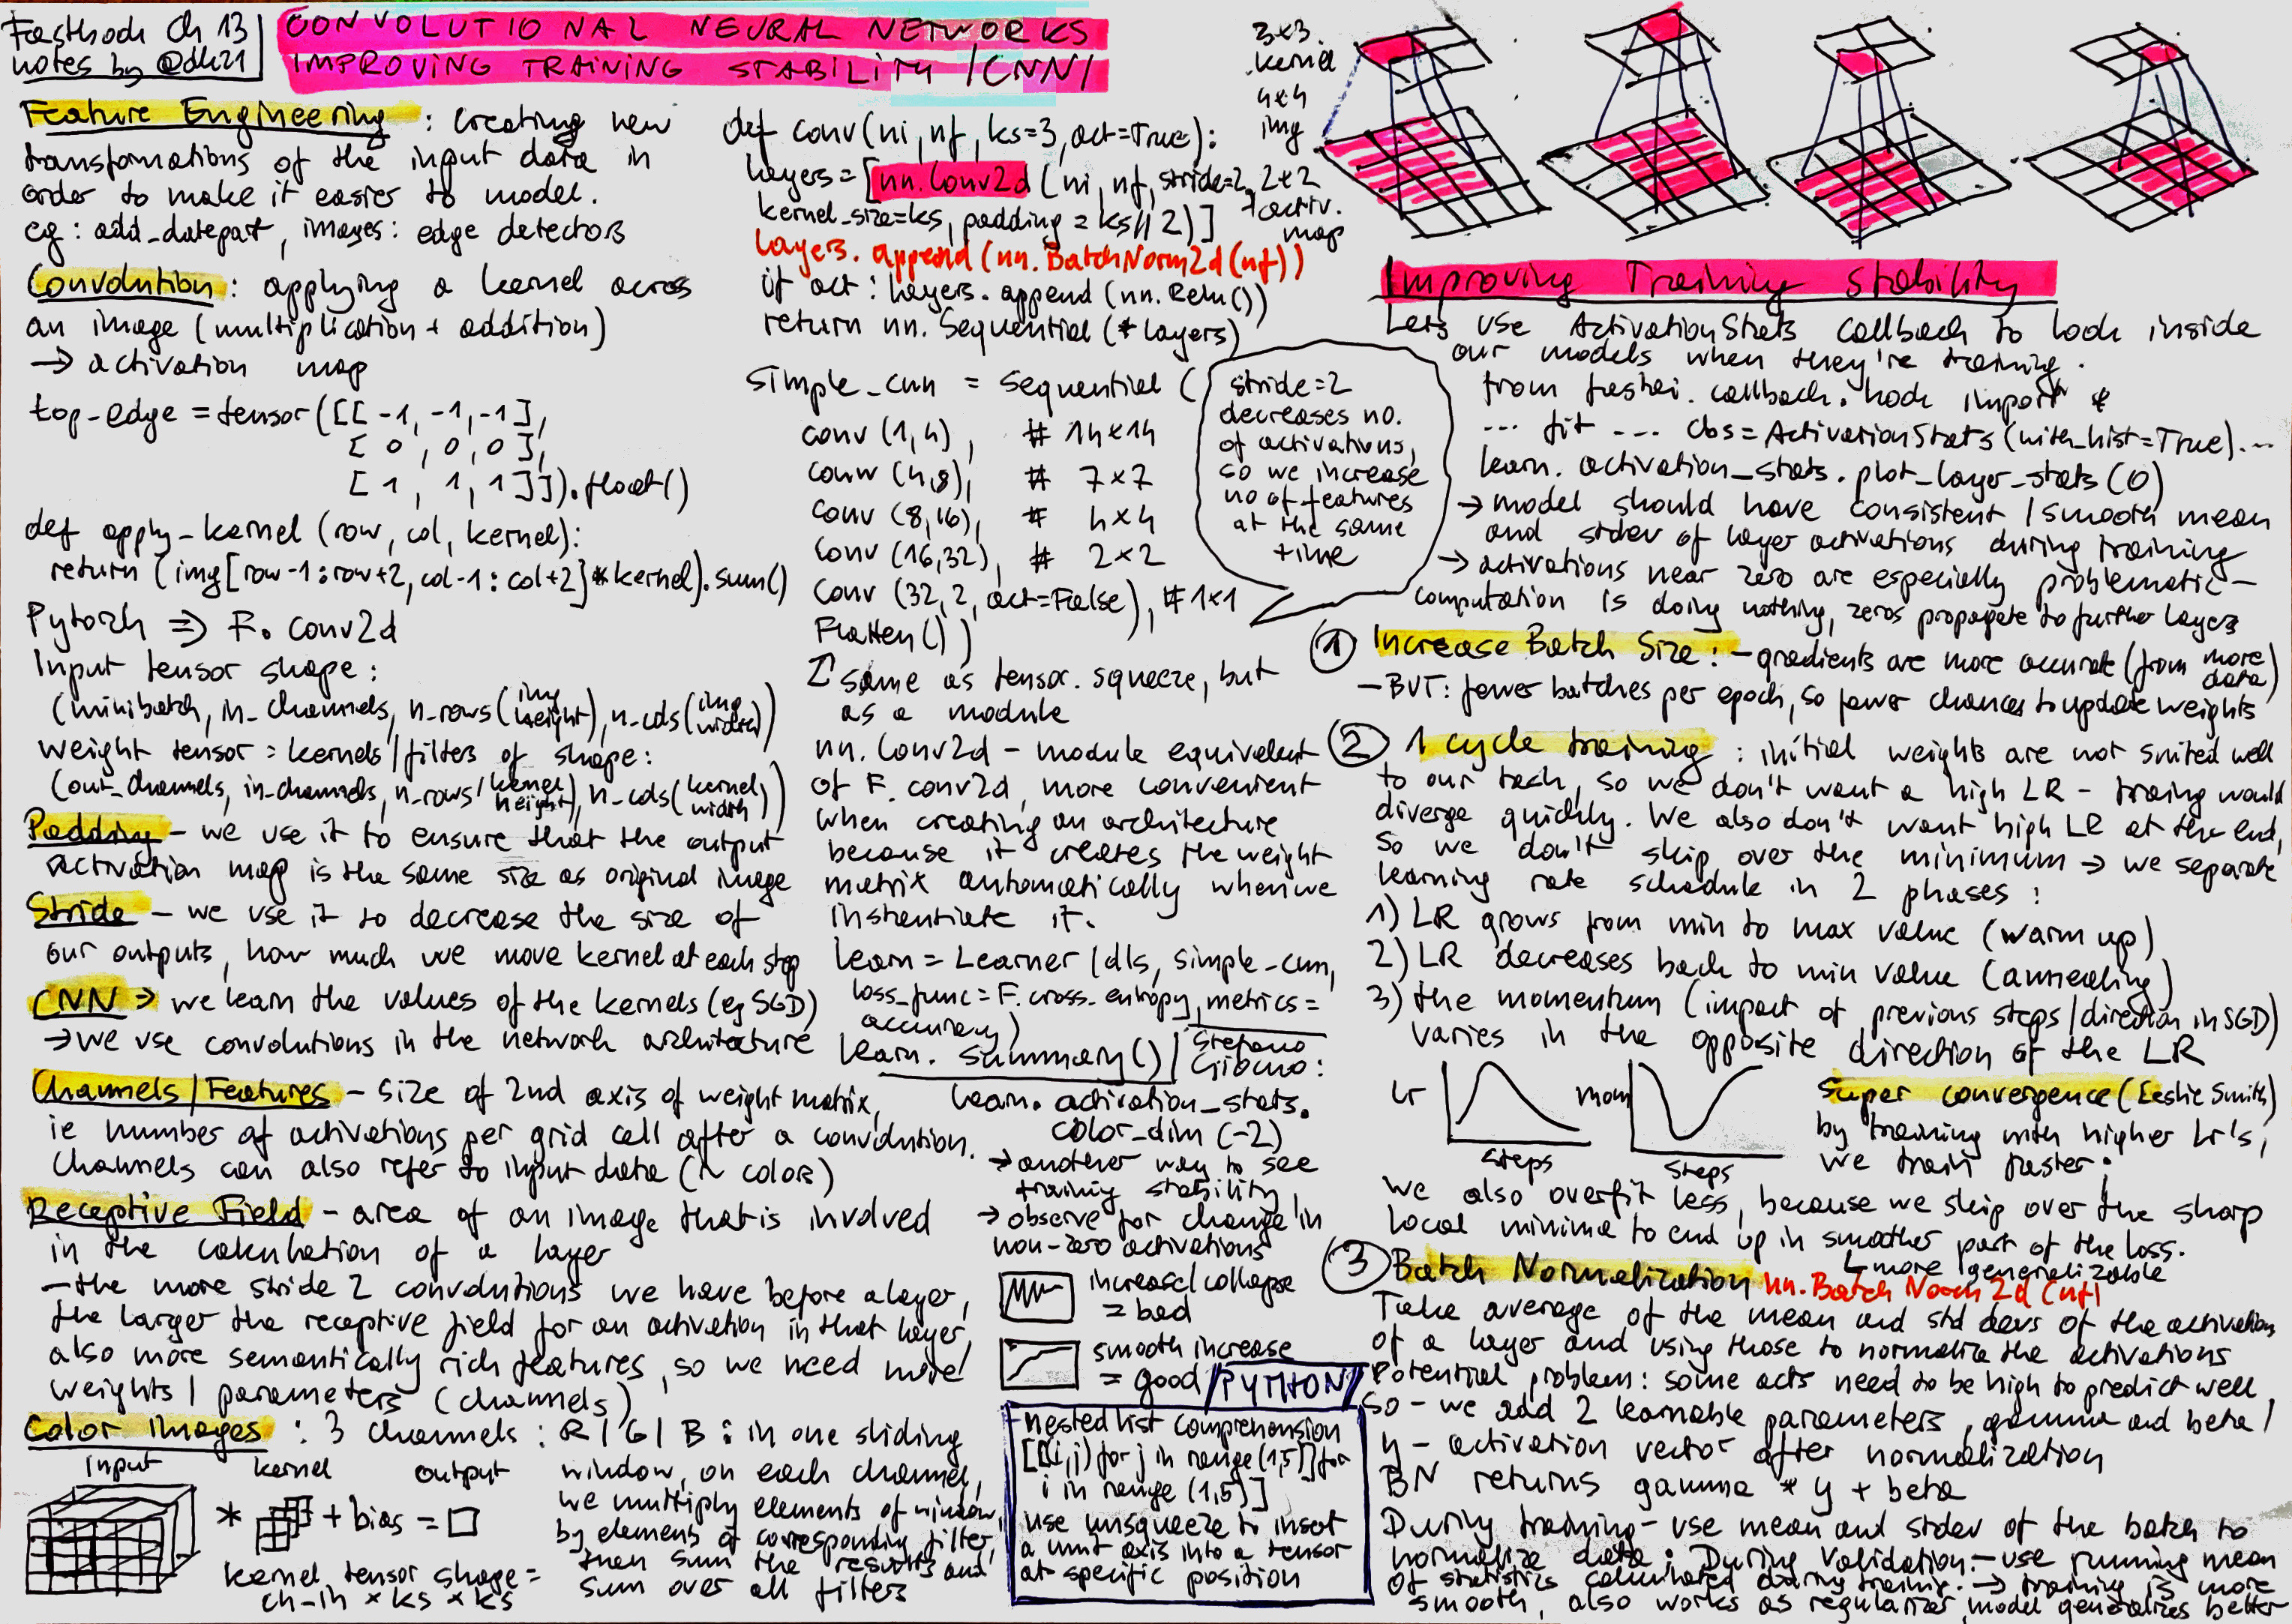 Fastbook Ch 13
notes by @dk21
CONVOLUTIONAL NEURAL NETWORKS
IMPROVING TRAINING STABILITY /CNN/
Feature Engineering : creating new
transformations of the input data in
order to make it easier to model.
eg: add_datepart, images: edge detectors
Convolution: applying a kernel across
an image (multiplication + addition)
→ activation map
top-edge = tensor([[-1, -1, -1],
[0, 0, 0],
[1, 1, 1]]).float()
def apply-kernel (row, col, kernel):
return (img[row-1:row+2, col-1:col+2]*kernel).sum()
Pytorch ⇒ F.conv2d
Input tensor shape:
(minibatch, in_channels, n_rows(img height), n_cols(img width))
weight tensor = kernels/filters of shape:
(out_channels, in_channels, n_rows(kernel height), n_cols(kernel width))
Padding - we use it to ensure that the output
activation map is the same size as original image
Stride - we use it to decrease the size of
our outputs, how much we move kernel at each step
CNN → we learn the values of the kernels (eg SGD)
→ we use convolutions in the network architecture
Channels/Features - size of 2nd axis of weight matrix,
ie number of activations per grid cell after a convolution.
Channels can also refer to input data (~ colors)
Receptive Field - area of an image that is involved
in the calculation of a layer
- the more stride 2 convolutions we have before a layer,
the larger the receptive field for an activation in that layer,
also more semantically rich features, so we need more
weights / parameters (channels)
Color Images : 3 channels: R/G/B : in one sliding
window, on each channel,
we multiply elements of window,
by elements of corresponding filter,
then sum the results and
sum over all filters
input kernel output
* + bias =
kernel tensor shape =
ch-in × ks × ks
def conv(ni, nf, ks=3, act=True):
layers = [nn.Conv2d(ni, nf, stride=2,
kernel_size=ks, padding=ks//2)]
layers.append(nn.BatchNorm2d(nf))
if act: layers.append(nn.Relu())
return nn.Sequential(*layers)
simple_cnn = sequential(
conv (1,4), # 14×14
conv (4,8), # 7×7
conv (8,16), # 4×4
conv (16,32), # 2×2
conv (32,2, act=False), #1×1
Flatten())
stride=2
decreases no.
of activations,
so we increase
no of features
at the same
time
↑ same as tensor.squeeze, but
as a module
nn.Conv2d - module equivalent
of F.conv2d, more convenient
when creating an architecture
because it creates the weight
matrix automatically when we
instentiate it.
learn = Learner(dls, simple_cnn,
loss_func=F.cross_entropy, metrics=
accuracy)
learn.summary()
Stefano
Giomo:
learn.activation_stats.
color_dim(-2)
→ another way to see
training stability,
→ observe for change in
non-zero activations
increase/collapse
= bad
smooth increase
= good
/PYTHON/
- nested list comprehension
[[(i,j) for j in range(1,5)] for
i in range (1,5)]
use unsqueeze to insert
a unit axis into a tensor
at specific position
3×3
kernel
4×4
img
2×2
activ.
map
Improving Training Stability
Lets use ActivationStats callback to look inside
our models when they're training.
from fastai.callback.hook import *
... fit ... cbs=ActivationStats(with_hist=True)...
learn.activation_stats.plot_layer_stats(0)
→ model should have consistent / smooth mean
and stdev of layer activations during training
→ activations near zero are especially problematic -
computation is doing nothing, zeros propagate to further layers
① Increase Batch Size: - gradients are more accurate (from more data)
- BUT: fewer batches per epoch, so fewer chances to update weights
② 1 cycle training : initial weights are not suited well
to our task, so we don't want a high LR - training would
diverge quickly. We also don't want high LR at the end,
so we don't skip over the minimum → we separate
learning rate schedule in 2 phases:
1) LR grows from min to max value (warm up)
2) LR decreases back to min value (annealing)
3) the momentum (impact of previous steps/direction in SGD)
varies in the opposite direction of the LR
lr
steps
mom
steps
Super convergence (Leslie Smith)
by training with higher lr's,
we train faster!
We also overfit less, because we skip over the sharp
local minima to end up in smoother part of the loss.
↳ more generalizable
③ Batch Normalization nn.BatchNorm2d(nf)
Take average of the mean and std devs of the activations
of a layer and using those to normalize the activations
Potential problem: some acts need to be high to predict well,
so - we add 2 learnable parameters, gamma and beta /
y - activation vector after normalization
BN returns gamma * y + beta
During training - use mean and stdev of the batch to
normalize data; During validation - use running mean
of statistics calculated during training. → training is more
smooth, also works as regularizer, model generalizes better